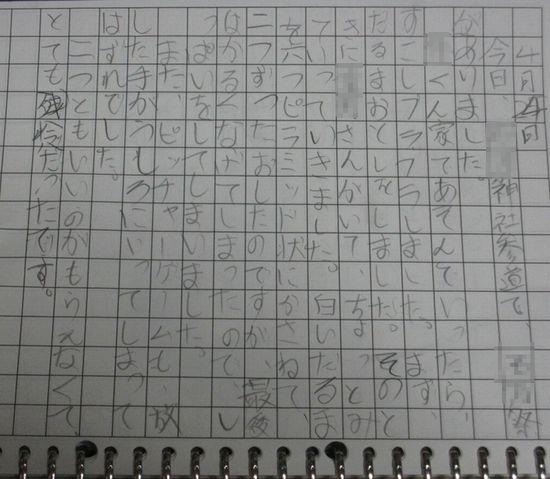 4月29日
今日、神社参道で、祭
がありました。
くん家であそんでいったら、
すこしブラブラしました。まず、
だるまおとしをしました。そのと
きにさんがいて、ちょっとみ
ていきました。白いだるま
を六つピラミッド状にかさねて、
二つずつたおしたのですが、最後
はかるくなげてしまったので、し
っぱいをしてしまいました。
また、ピッチャーゲームも、放
した手がうしろにいってしまって
はずれでした。
二つともいいのがもらえなくて、
とても残念だったです。